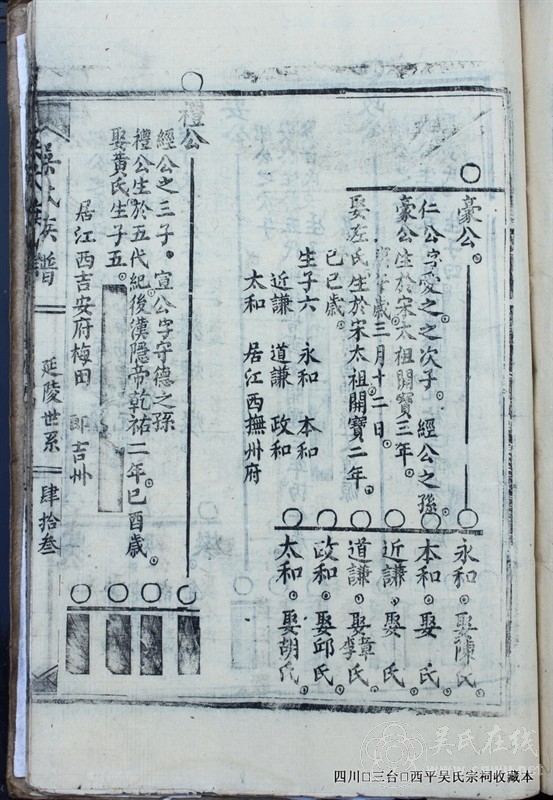 豪公
仁公字愛之之次子 經公之孫
豪公生於宋太祖開寶三年
歲三月十二日
娶左氏生於宋太祖開寶二年
己巳歲
生子六 永和 本和
近謙 道謙 政和
太和 居江西撫州府
永和 娶陳氏
本和 娶 氏
近謙 娶 氏
道謙 娶章李氏
政和 娶邱氏
太和 娶胡氏
禮公
經公之三子 宣公字守德之孫
禮公生於五代紀後漢隱帝乾祐二年己酉歲
娶黃氏生子五
居江西吉安府梅田 即吉州
吳氏族譜 延陵世系 肆拾叁
吳氏在线
四川□三台□西平吴氏宗祠收藏本